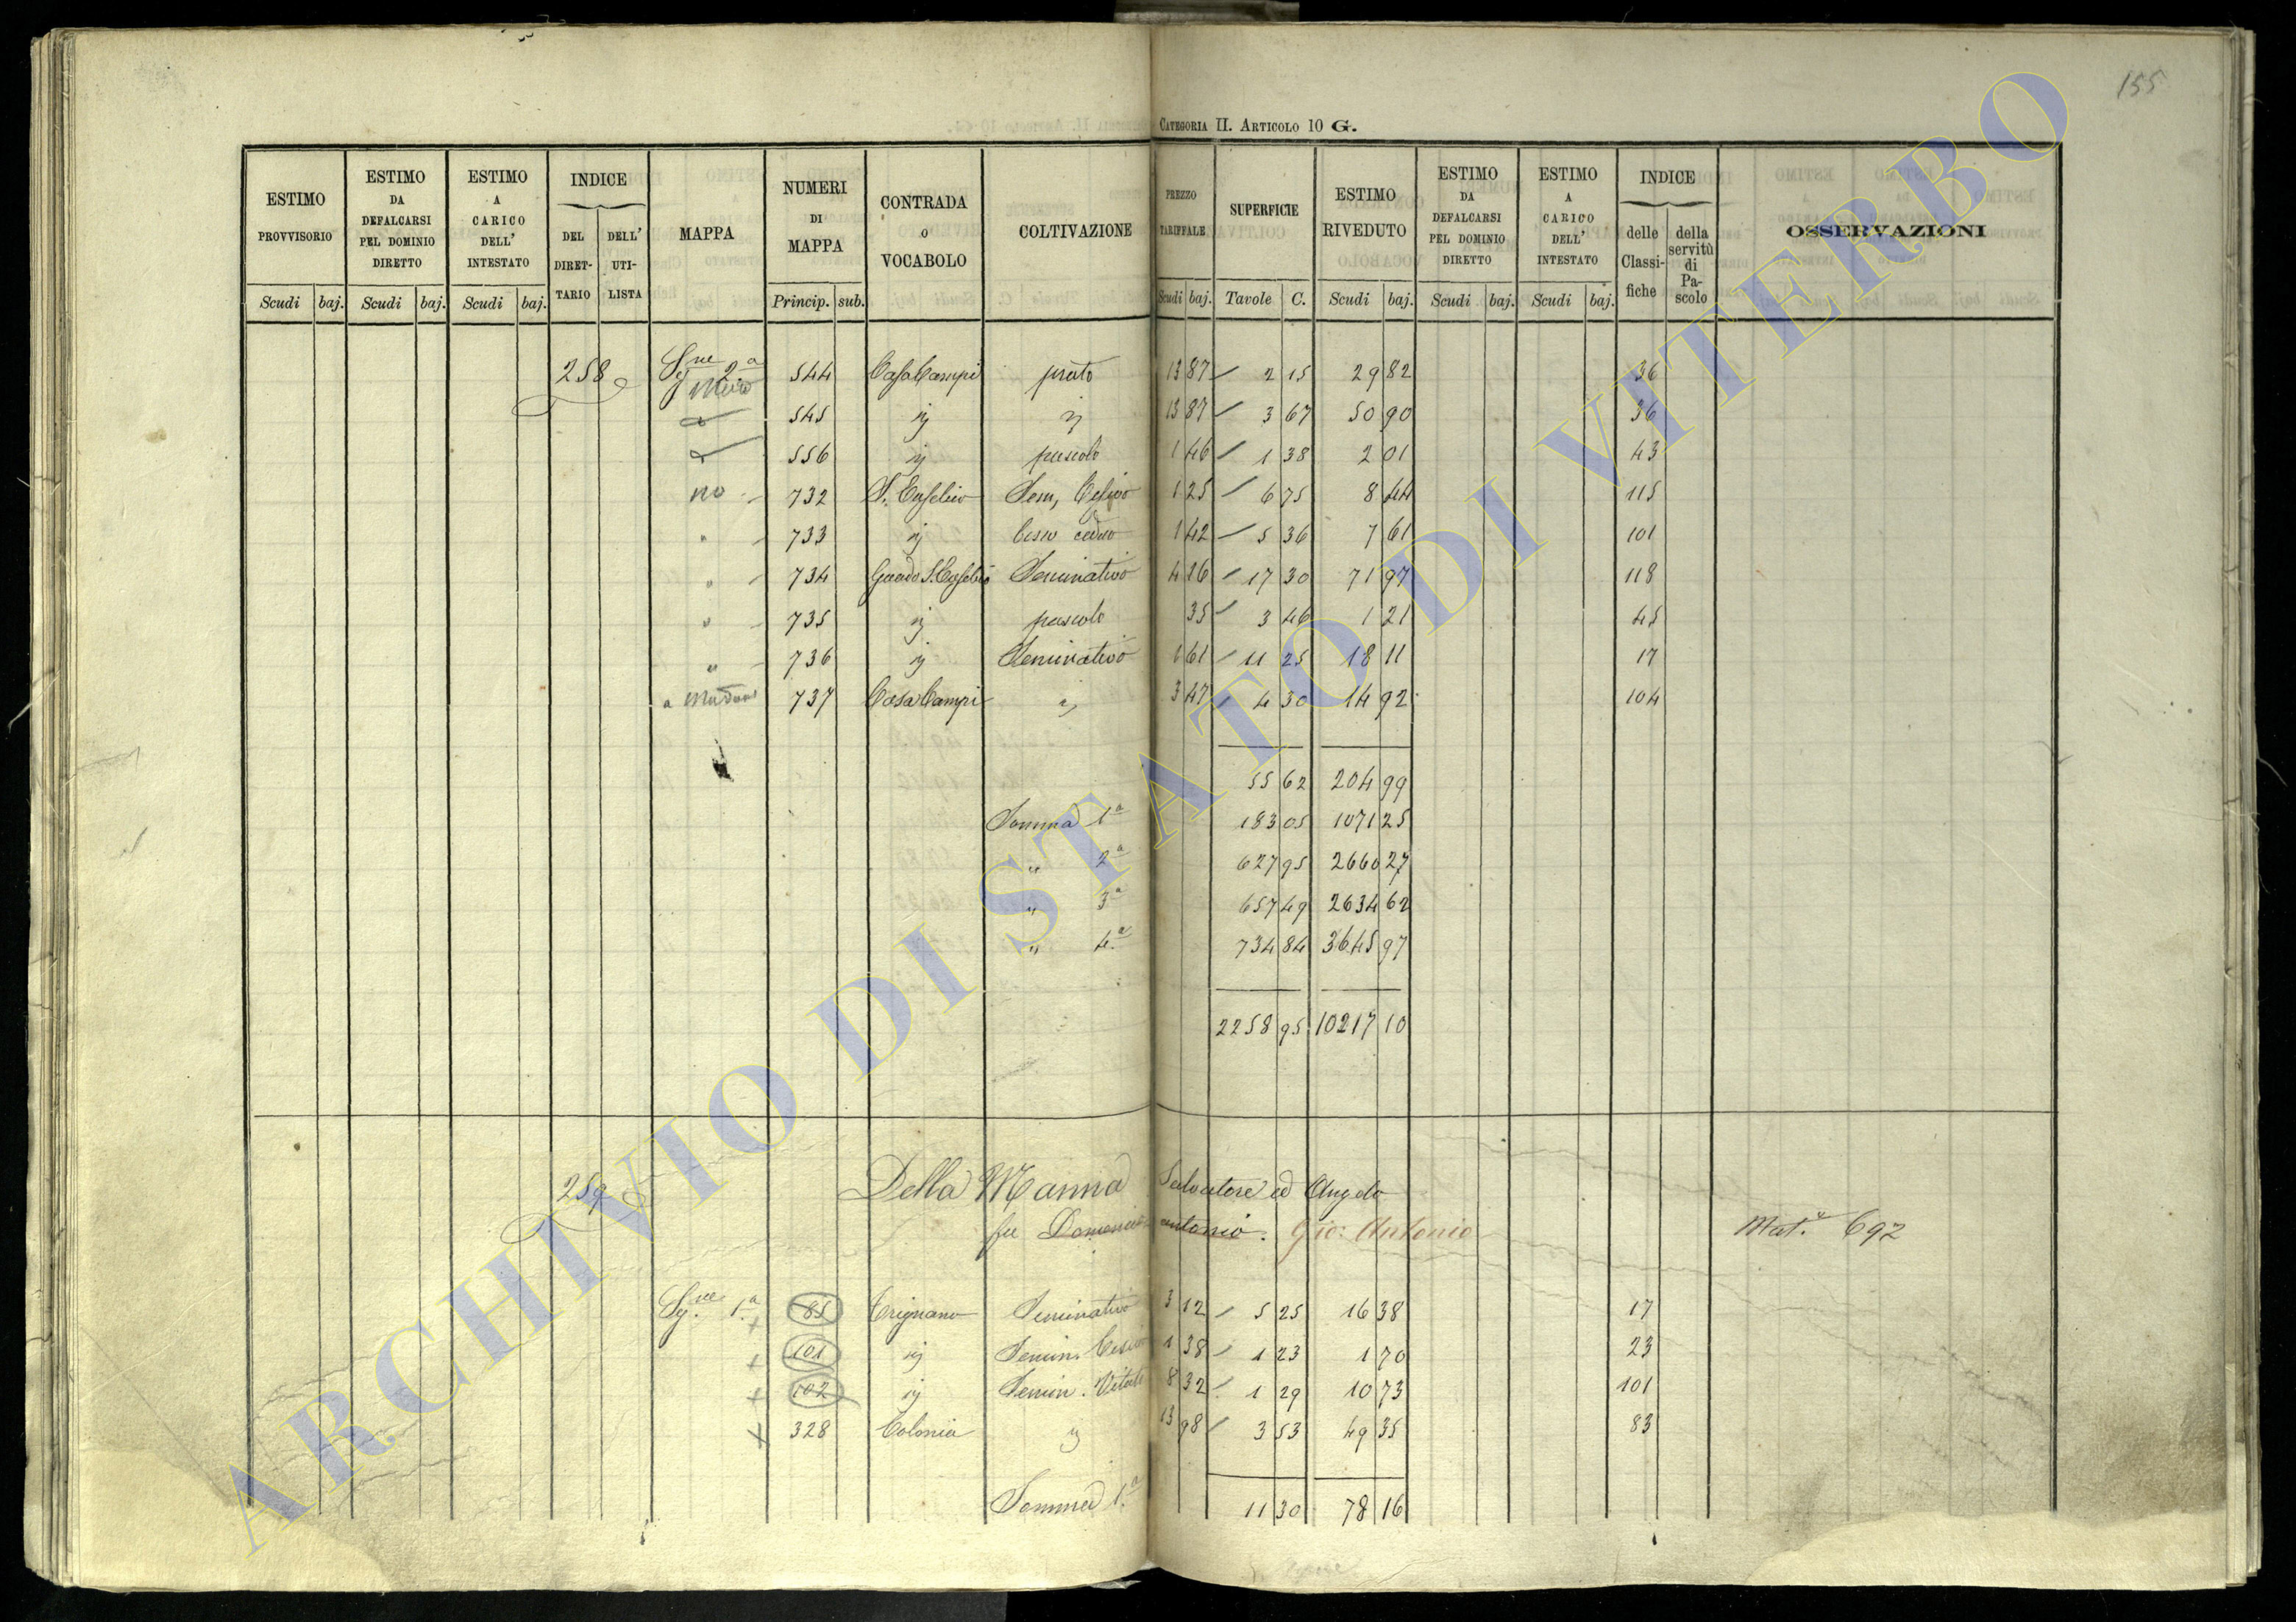 155
CATEGORIA II. ARTICOLO 10 G.
ESTIMO PROVVISORIO Scudi baj.
ESTIMO DA DEFALCARSI PEL DOMINIO DIRETTO Scudi baj.
ESTIMO A CARICO DELL' INTESTATO Scudi baj.
INDICE DEL DIRET-TARIO DELL' UTI-LISTA
MAPPA
NUMERI DI MAPPA Princip. sub.
CONTRADA O VOCABOLO
COLTIVAZIONE
PREZZO TARIFFALE Scudi baj.
SUPERFICIE Tavole C.
ESTIMO RIVEDUTO Scudi baj.
ESTIMO DA DEFALCARSI PEL DOMINIO DIRETTO Scudi baj.
ESTIMO A CARICO DELL' INTESTATO Scudi baj.
INDICE delle Classi-fiche della servitù di Pa-scolo
OSSERVAZIONI
258 Sg.ne 2a 544 Casa Campi prato 13 87 2 15 29 82 36
545 ij ij 13 87 3 67 50 90 36
556 ij pascolo 1 46 1 38 2 01 43
no 732 S. Eusebio Sem. Cesivo 1 25 6 75 8 44 115
" 733 ij Ceseo ceduo 1 42 5 36 7 61 101
" 734 Guado S. Eusebio Seminativo 4 16 17 30 71 97 118
" 735 ij pascolo 35 3 46 1 21 45
" 736 ij Seminativo 1 61 11 25 18 11 17
737 Casa Campi ij 3 47 4 30 14 92 104
55 62 204 99
Somma 1a 183 05 1071 25
" 2a 627 95 2660 27
" 3a 657 49 2634 62
" 4a 734 84 3645 97
2258 95 10217 10
259 Della Manna Salvatore ed Angelo
fu Domenicantonio. Gio: Antonio Mat.a 692
Sg.ne 1a 85 Trignano Seminativo 3 12 5 25 16 38 17
+ 101 ij Semin. Cesivo 1 38 1 23 1 70 23
+ 102 ij Semin. Vitato 8 32 1 29 10 73 101
+ 328 Colonia ij 13 98 3 53 49 35 83
Somma 1a 11 30 78 16
ARCHIVIO DI STATO DI VITERBO